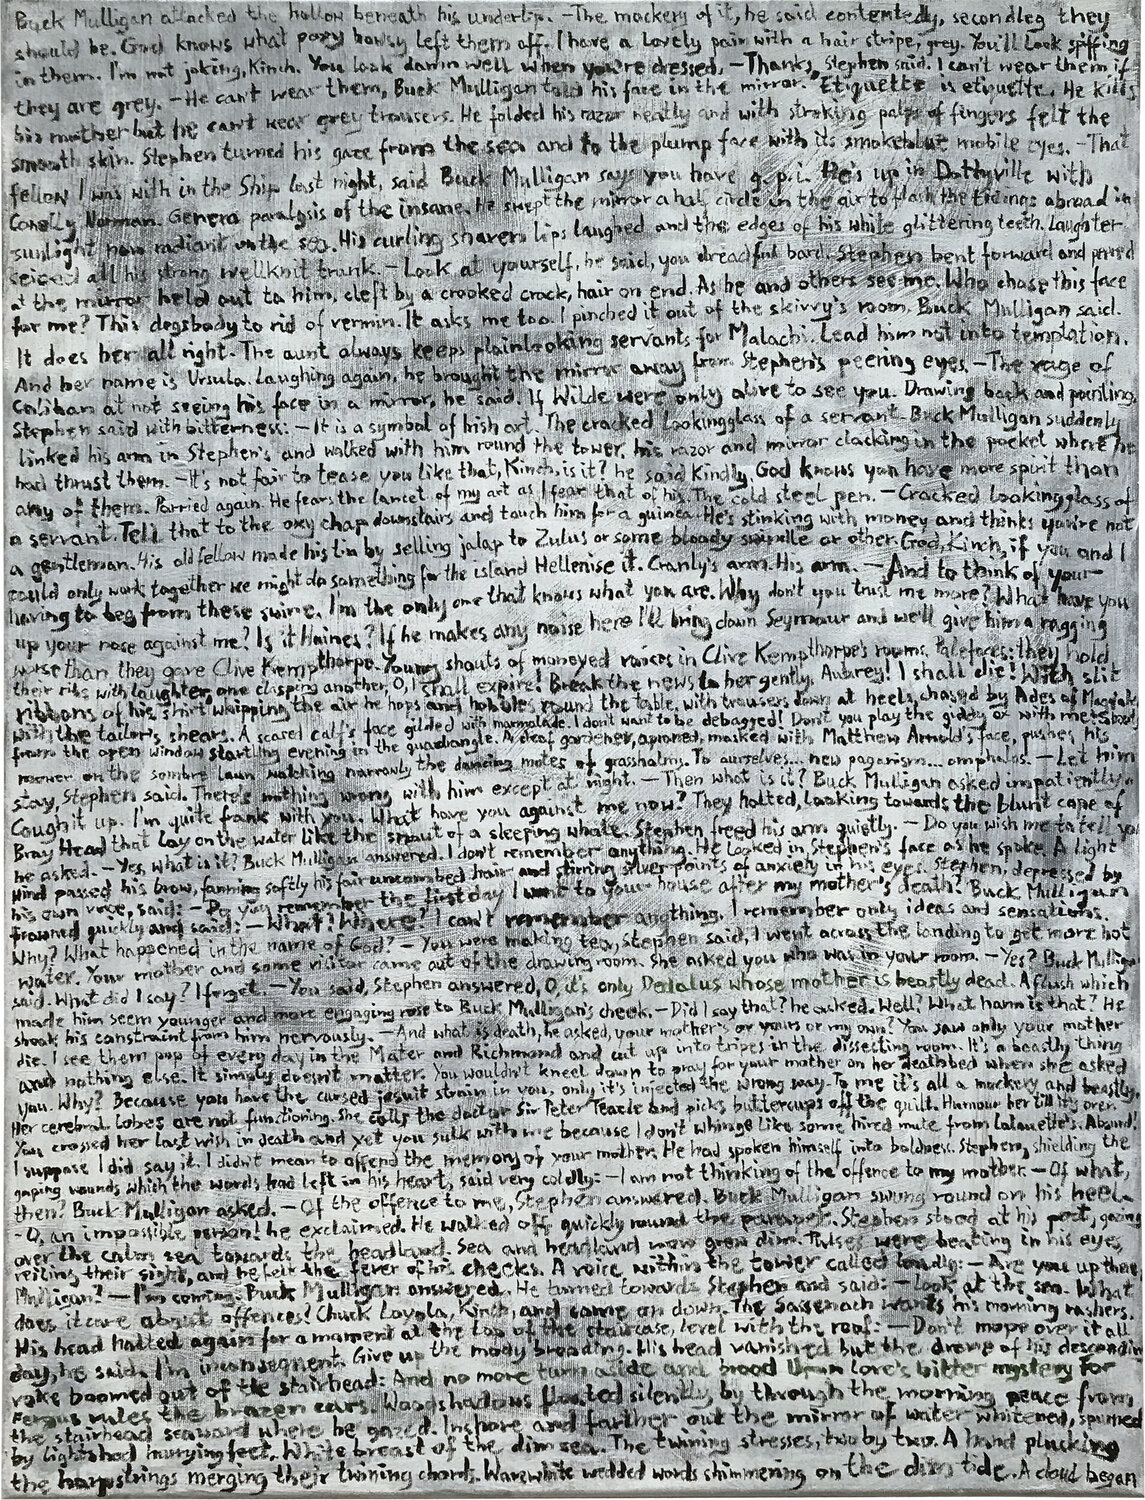 Buck Mulligan attacked the hollow beneath his underlip. -The mockery of it, he said contentedly, secondleg they
should be. God knows what poxy bowsy left them off. I have a lovely pair with a hair stripe, grey. You'll look spiffing
in them. I'm not joking, Kinch. You look damn well when you're dressed. -Thanks, Stephen said. I can't wear them if
they are grey. -He can't wear them, Buck Mulligan told his face in the mirror. Etiquette is etiquette. He kills
his mother but he can't wear grey trousers. He folded his razor neatly and with stroking palps of fingers felt the
smooth skin. Stephen turned his gaze from the sea and to the plump face with its smokeblue mobile eyes. -That
fellow I was with in the Ship last night, said Buck Mulligan says you have g. p. i. He's up in Dottyville with
Conolly Norman. General paralysis of the insane. He swept the mirror a half circle in the air to flash the tidings abroad in
sunlight now radiant on the sea. His curling shaven lips laughed and the edges of his white glittering teeth. Laughter
seized all his strong wellknit trunk. -Look at yourself, he said, you dreadful bard. Stephen bent forward and peered
at the mirror held out to him, cleft by a crooked crack, hair on end. As he and others see me. Who chose this face
for me? This dogsbody to rid of vermin. It asks me too. I pinched it out of the skivvy's room, Buck Mulligan said.
It does her all right. The aunt always keeps plainlooking servants for Malachi. Lead him not into temptation.
And her name is Ursula. Laughing again, he brought the mirror away from Stephen's peering eyes. -The rage of
Caliban at not seeing his face in a mirror, he said. If Wilde were only alive to see you. Drawing back and pointing,
Stephen said with bitterness: -It is a symbol of Irish art. The cracked lookingglass of a servant. Buck Mulligan suddenly
linked his arm in Stephen's and walked with him round the tower, his razor and mirror clacking in the pocket where he
had thrust them. -It's not fair to tease you like that, Kinch, is it? he said kindly. God knows you have more spirit than
any of them. Parried again. He fears the lancet of my art as I fear that of his. The cold steel pen. -Cracked lookingglass of
a servant. Tell that to the oxy chap downstairs and touch him for a guinea. He's stinking with money and thinks you're not
a gentleman. His old fellow made his tin by selling jalap to Zulus or some bloody swindle or other. God, Kinch, if you and I
could only work together we might do something for the island Hellenise it. Cranly's arm. His arm. -And to think of your
having to beg from these swine. I'm the only one that knows what you are. Why don't you trust me more? What have you
up your nose against me? Is it Haines? If he makes any noise here I'll bring down Seymour and we'll give him a ragging
worse than they gave Clive Kempthorpe. Young shouts of moneyed voices in Clive Kempthorpe's rooms. Palefaces: they hold
their ribs with laughter, one clasping another, O, I shall expire! Break the news to her gently, Aubrey! I shall die! With slit
ribbons of his shirt whipping the air he hops and hobbles round the table, with trousers down at heels, chased by Ades of Magdalen
with the tailor's shears. A scared calf's face gilded with marmalade. I don't want to be debagged! Don't you play the giddy ox with me! Shouts
from the open window startling evening in the quadrangle. A deaf gardener, aproned, masked with Matthew Arnold's face, pushes his
mower on the sombre lawn watching narrowly the dancing motes of grasshalms. To ourselves... new paganism... omphalos. -Let him
stay, Stephen said. There's nothing wrong with him except at night. -Then what is it? Buck Mulligan asked impatiently.
Cough it up. I'm quite frank with you. What have you against me now? They halted, looking towards the blunt cape of
Bray Head that lay on the water like the snout of a sleeping whale. Stephen freed his arm quietly. -Do you wish me to tell you
he asked. -Yes, what is it? Buck Mulligan answered. I don't remember anything. He looked in Stephen's face as he spoke. A light
wind passed his brow, fanning softly his fair uncombed hair and stirring silver points of anxiety in his eyes. Stephen, depressed by
his own voice, said: -Do you remember the first day I went to your house after my mother's death? Buck Mulligan
frowned quickly and said: -What? Where? I can't remember anything. I remember only ideas and sensations.
Why? What happened in the name of God? -You were making tea, Stephen said, I went across the landing to get more hot
water. Your mother and some visitor came out of the drawingroom. She asked you who was in your room. -Yes? Buck Mulligan
said. What did I say? I forget. -You said, Stephen answered, O, it's only Dedalus whose mother is beastly dead. A flush which
made him seem younger and more engaging rose to Buck Mulligan's cheek. -Did I say that? he asked. Well? What harm is that? He
shook his constraint from him nervously. -And what is death, he asked, your mother's or yours or my own? You saw only your mother
die. I see them pop off every day in the Mater and Richmond and cut up into tripes in the dissecting room. It's a beastly thing
and nothing else. It simply doesn't matter. You wouldn't kneel down to pray for your mother on her deathbed when she asked
you. Why? Because you have the cursed jesuit strain in you, only it's injected the wrong way. To me it's all a mockery and beastly.
Her cerebral lobes are not functioning. She calls the doctor Sir Peter Teazle and picks buttercups off the quilt. Humour her till it's over.
You crossed her last wish in death and yet you sulk with me because I don't whinge like some hired mute from Lalouette's. Absurd!
I suppose I did say it. I didn't mean to offend the memory of your mother. He had spoken himself into boldness. Stephen, shielding the
gaping wounds which the words had left in his heart, said very coldly: -I am not thinking of the offence to my mother. -Of what,
then? Buck Mulligan asked. -Of the offence to me, Stephen answered. Buck Mulligan swung round on his heel.
-O, an impossible person! he exclaimed. He walked off quickly round the parapet. Stephen stood at his post, gazing
over the calm sea towards the headland. Sea and headland now grew dim. Pulses were beating in his eyes,
veiling their sight, and he felt the fever of his cheeks. A voice within the tower called loudly: -Are you up there,
Mulligan? -I'm coming, Buck Mulligan answered. He turned towards Stephen and said: -Look at the sea. What
does it care about offences? Chuck Loyola, Kinch, and come on down. The Sassenach wants his morning rashers.
His head halted again for a moment at the top of the staircase, level with the roof: -Don't mope over it all
day, he said. I'm inconsequent. Give up the moody brooding. His head vanished but the drone of his descending
voice boomed out of the stairhead: And no more turn aside and brood Upon love's bitter mystery For
Fergus rules the brazen cars. Woodshadows floated silently by through the morning peace from
the stairhead seaward where he gazed. Inshore and farther out the mirror of water whitened, spurned
by lightshod hurrying feet. White breast of the dim sea. The twining stresses, two by two. A hand plucking
the harpstrings merging their twining chords. Wavewhite wedded words shimmering on the dim tide. A cloud began